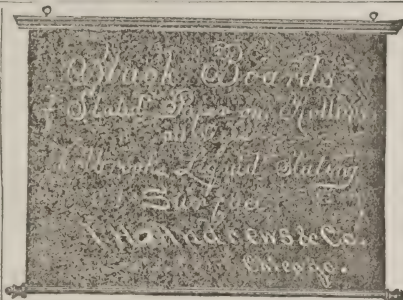 Black Boards
Slated Paper on Rollers
all
Holbrook's Liquid Slating
Surface
A. H. Andrews & Co.
Chicago.